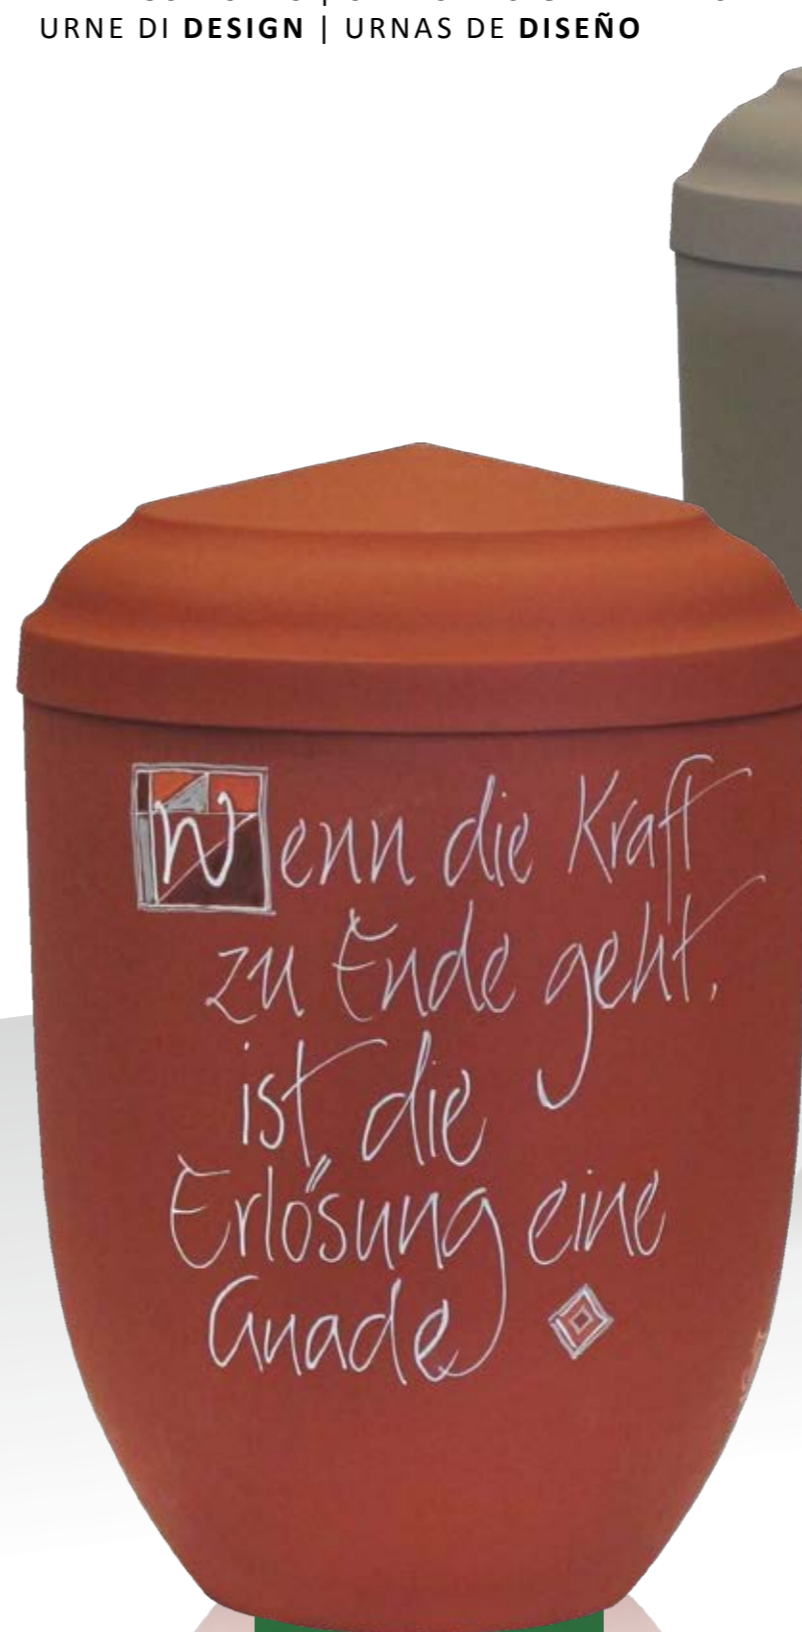 URNE DI DESIGN | URNAS DE DISEÑO
Wenn die Kraft
zu Ende geht,
ist die
Erlösung eine
Gnade